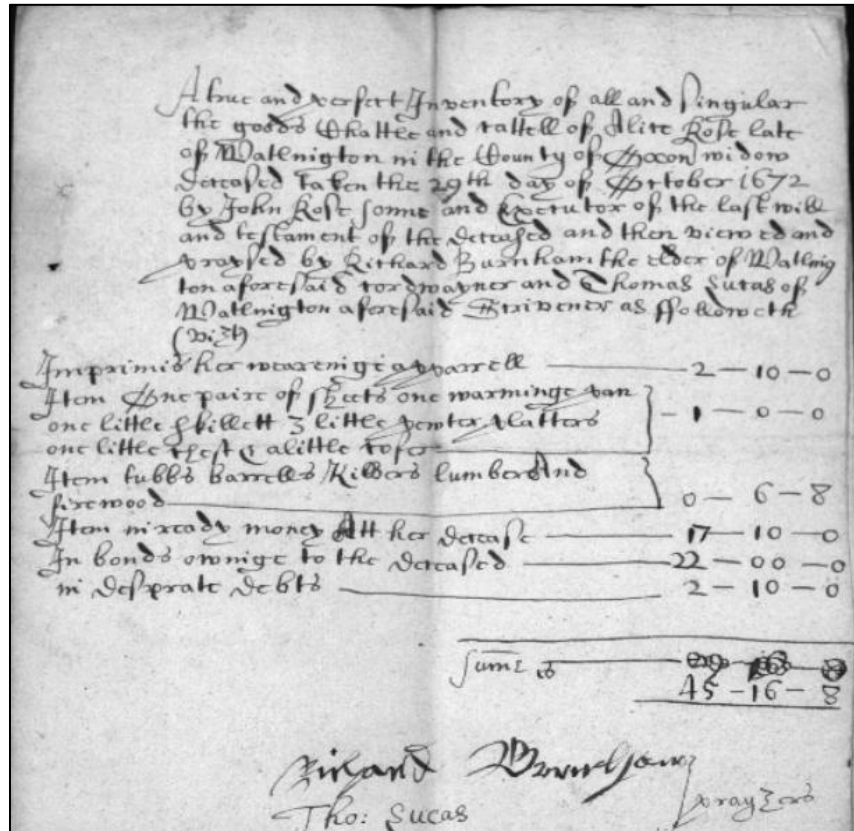 A true and perfect Inventory of all and singular
the goods Chattle and cattell of Alice Rose late
of Watlnigton in the County of Oxon widow
deceased taken the 29th day of October 1672
by John Rose sonne and Executor of the last will
and testament of the deceased and then viewed and
praysed by Richard Burnham the elder of Watlnig
ton aforesaid cordwayner and Thomas Lucas of
Watlnigton aforesaid Scrivener as ffolloweth
(vizt)
Imprimis her wearenige apparrell — 2 — 10 — 0
Item One paire of sheets one warminge pan
one little skillett 3 little pewter platters — 1 — 0 — 0
one little chest & a little cofer
Item tubbs barrells Kilvers lumber And
firewood — 0 — 6 — 8
Item in ready money Att her decease — 17 — 10 — 0
In bonds ownige to the deceased — 22 — 00 — 0
in desprate debts — 2 — 10 — 0
sume is
45 — 16 — 8
Richard Burnham
Tho: Lucas prayzers